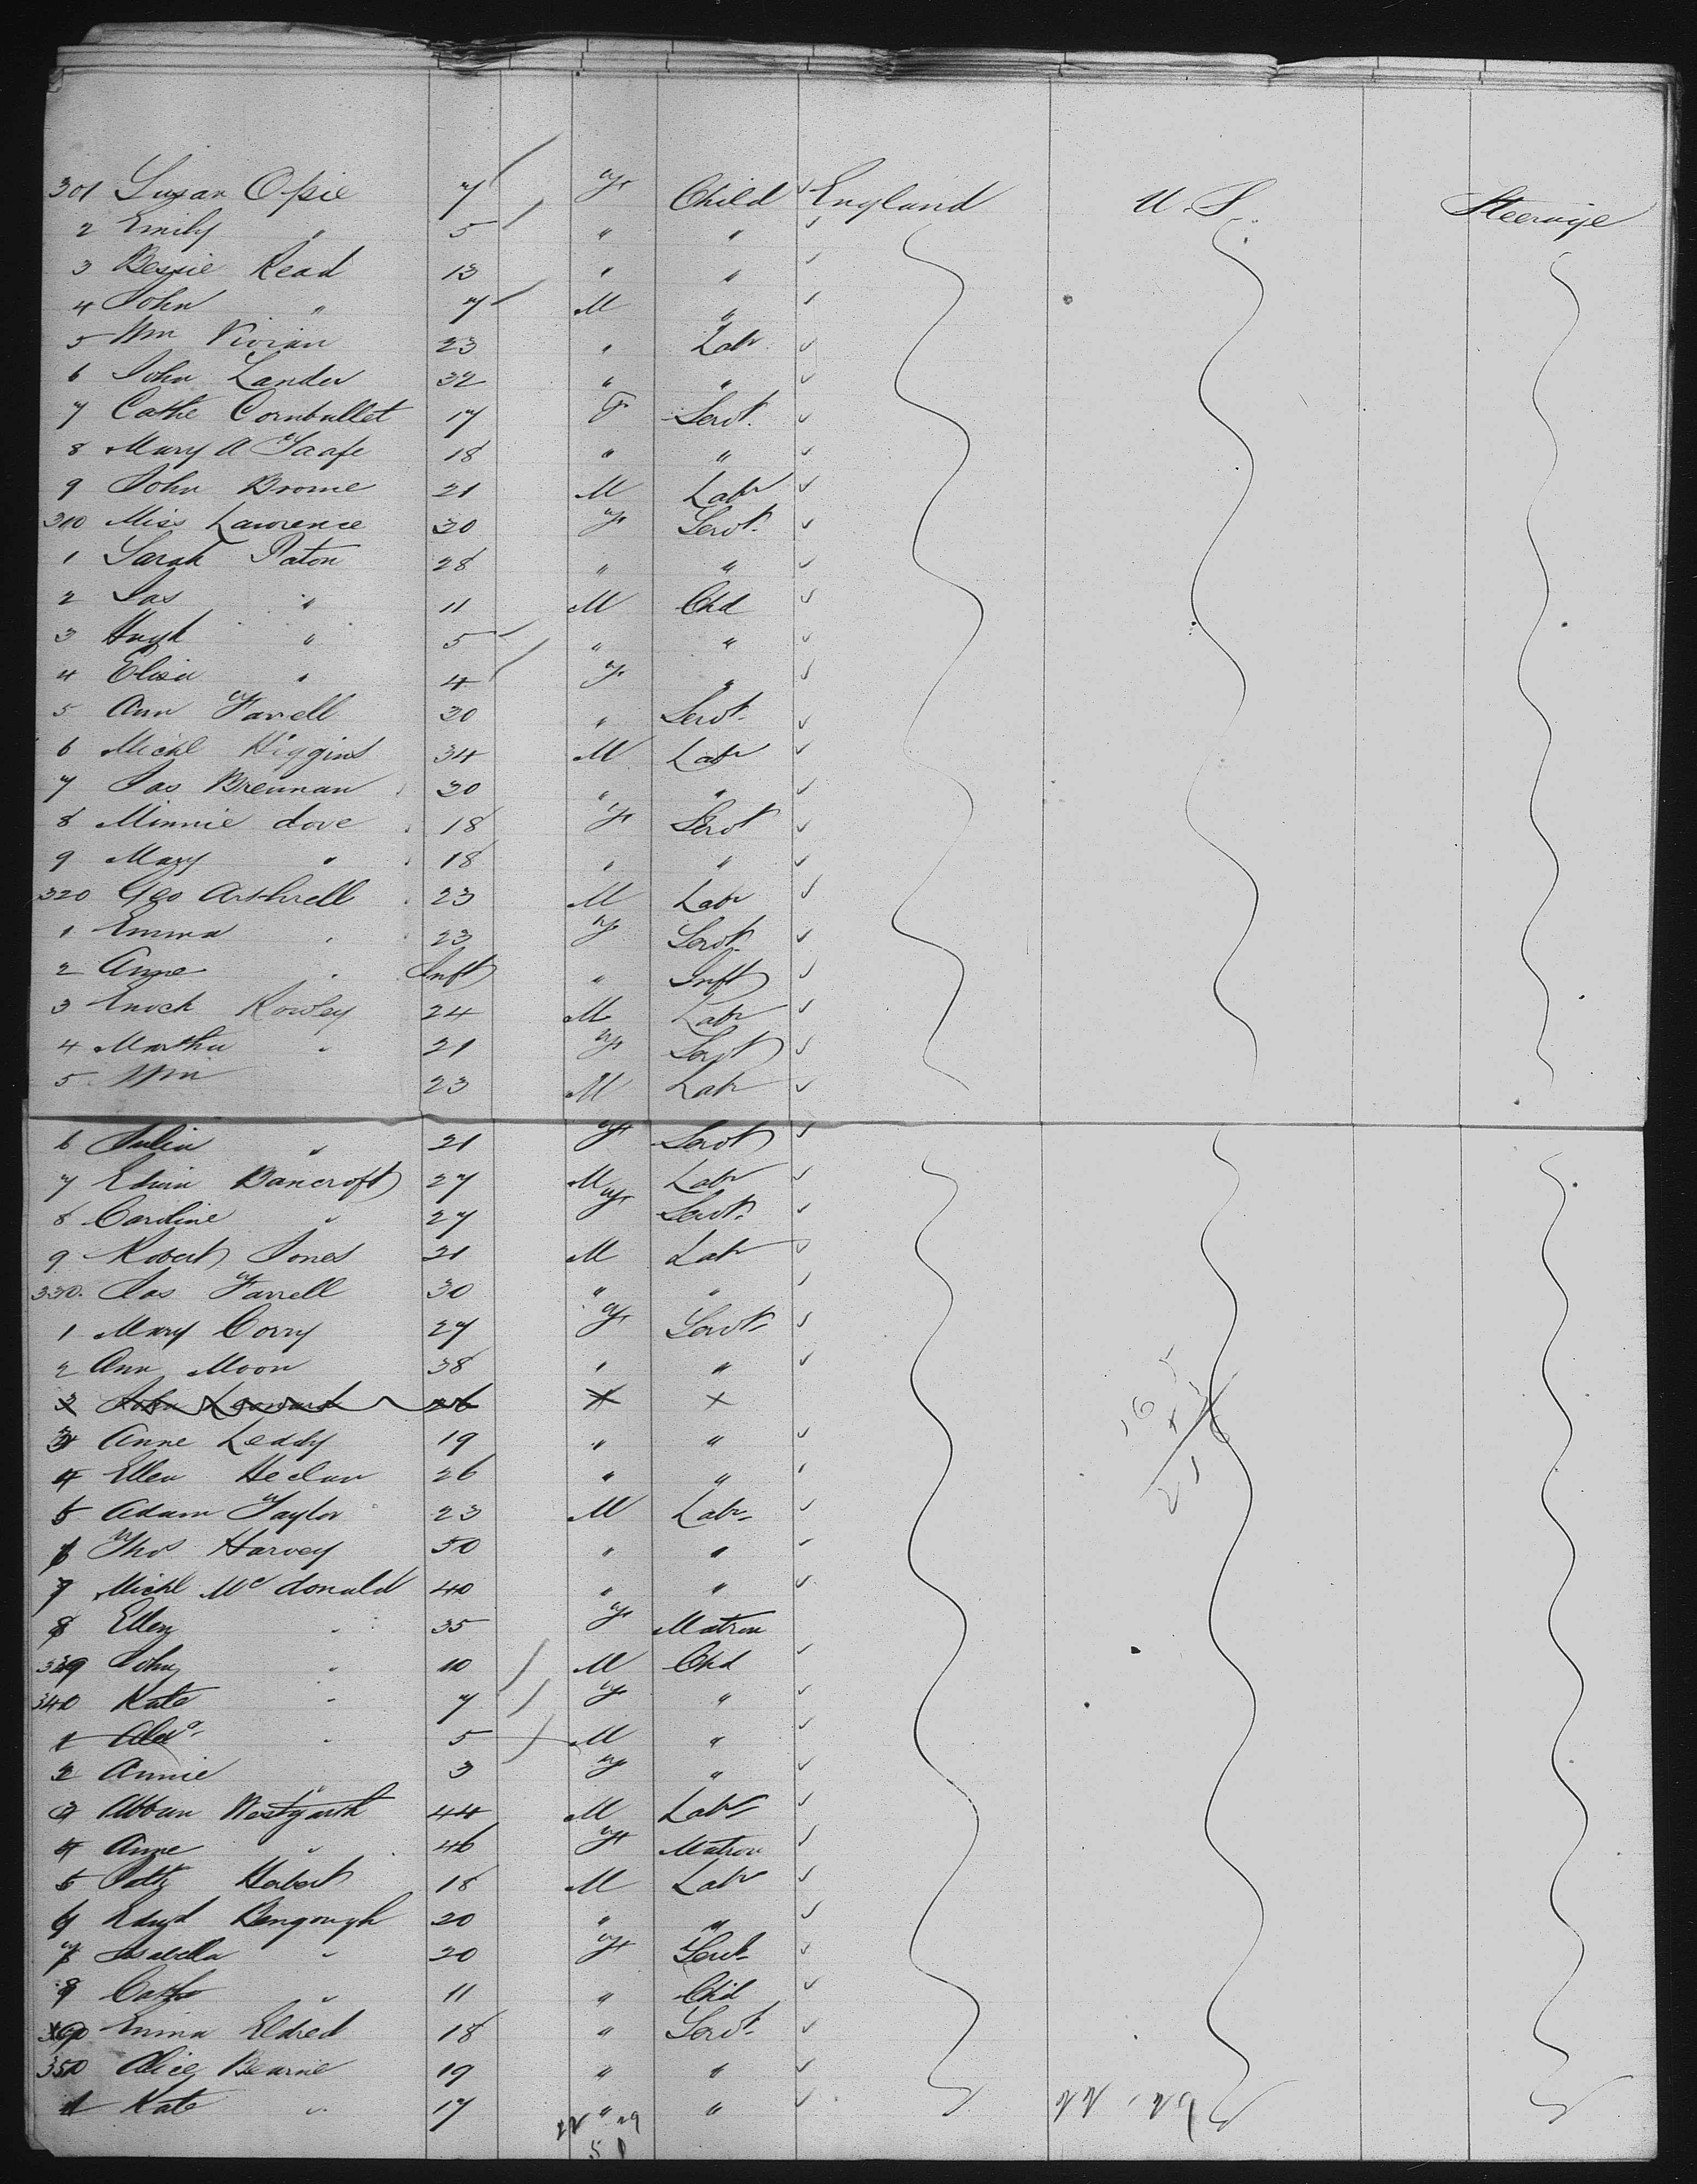 301 Susan Opie 7 F Child England U.S. Steerage
2 Emily " 5 " "
3 Bessie Read 13 " "
4 John " 7 M "
5 Wm Vivian 23 " Labr
6 John Lander 32 " "
7 Cathe Cornbullet 17 F Servt.
8 Mary A Taafe 18 " "
9 John Brome 21 M Labr
310 Miss Lawrence 30 F Servt.
1 Sarah Paton 28 " "
2 Jas " 11 M Chd
3 Hugh " 5 " "
4 Eliza " 4 F "
5 Ann Farrell 30 " Servt.
6 Michl Higgins 34 M Labr
7 Jas Brennan 30 " "
8 Minnie dove 18 F Servt
9 Mary " 18 " "
320 Geo Arthrell 23 M Labr
1 Emma " 23 F Servt.
2 Anne " Inft " Inft
3 Enoch Rowley 24 M Labr
4 Martha " 21 F Servt
5 Wm 23 M Labr
6 Julia " 21 F Servt
7 Edwin Bancroft 27 M Labr
8 Caroline " 27 F Servt.
9 Robert Jones 21 M Labr
330. Jas Farrell 30 " "
1 Mary Corry 27 F Servt.
2 Ann Moon 38 " "
3 John Leonard 26
3 Anne Leddy 19 " "
4 Ellen 26 " "
5 Adam Taylor 23 M Labr.
6 Thos Harvey 50 " "
7 Michl Mc donald 40 " "
8 Ellen " 35 F Matron
339 John " 10 M Chd
340 Kate " 7 F "
1 Alexr " 5 M "
2 Annie 3 F "
3 Westgarth 44 M Labr
4 Anne " 46 F Matron
5 Herbert 18 M Labr
6 Edwd Bengough 20 " "
7 Isabella " 20 F Servt.
8 Cathe " 11 " Chd
9 Emma Eldred 18 " Servt.
350 Alice Bearne 19 " "
1 Kate " 17 " "
22 29
51